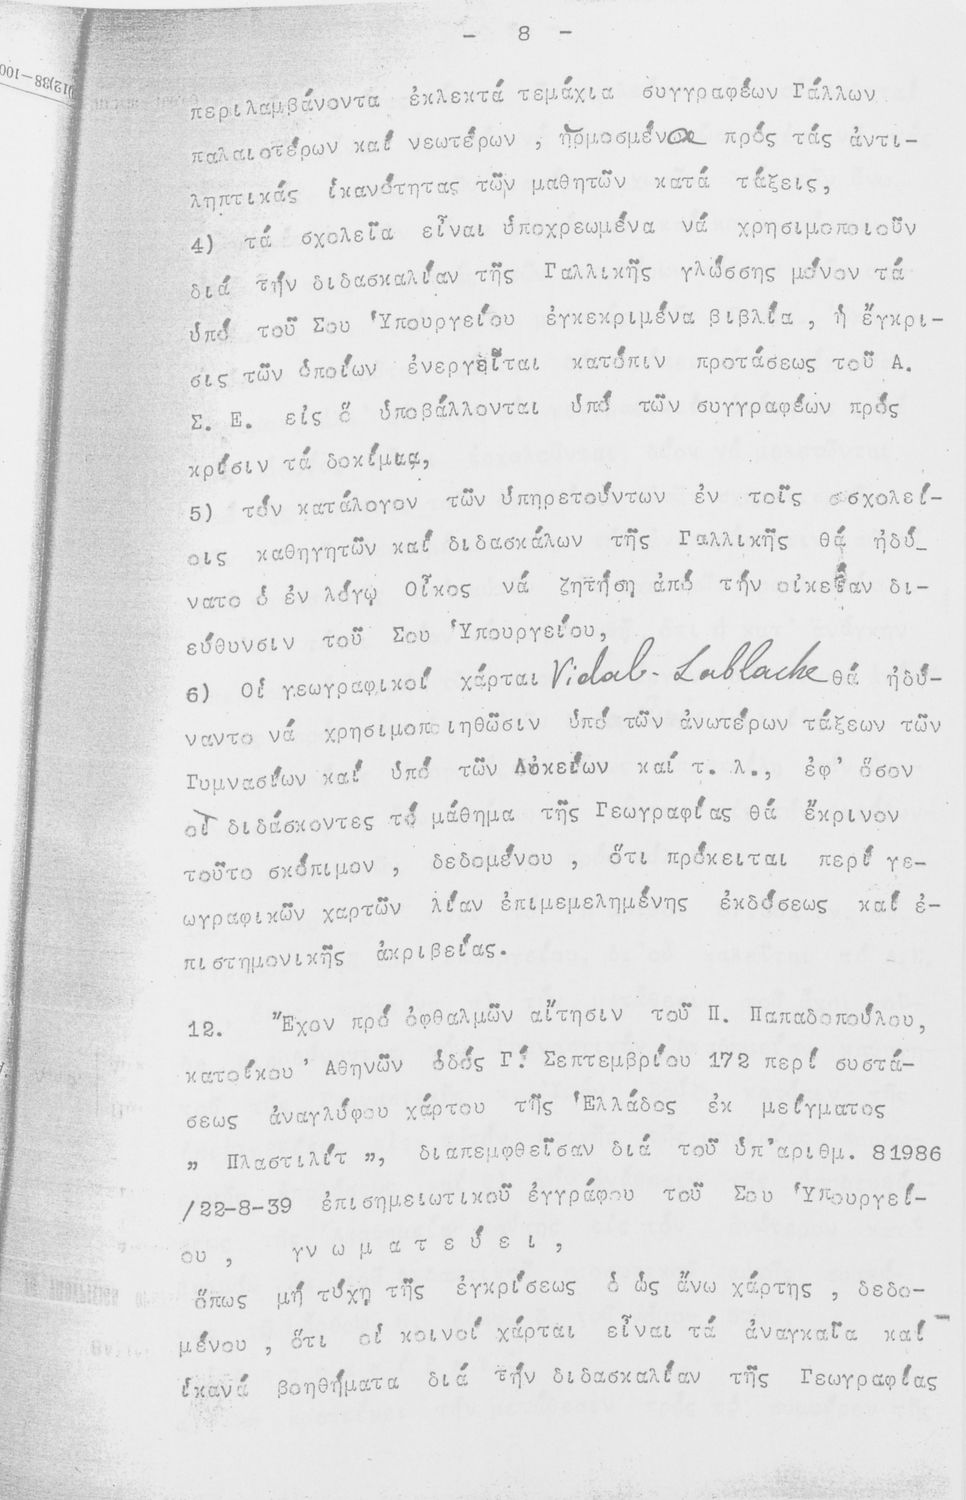 - 8 -
)12)38-100
περιλαμβάνοντα ἐκλεκτά τεμάχια συγγραφέων Γάλλων
παλαιοτέρων καί νεωτέρων , ἡρμοσμένα πρός τάς ἀντι-
ληπτικάς ἱκανότητας τῶν μαθητῶν κατά τάξεις,
4) τά σχολεῖα εἶναι ὑποχρεωμένα νά χρησιμοποιοῦν
διά τήν διδασκαλίαν τῆς Γαλλικῆς γλώσσης μόνον τά
ὑπό τοῦ Σου Ὑπουργείου ἐγκεκριμένα βιβλία , ἡ ἔγκρι-
σις τῶν ὁποίων ἐνεργεῖται κατόπιν προτάσεως τοῦ Α.
Σ. Ε. εἰς ὅ ὑποβάλλονται ὑπό τῶν συγγραφέων πρός
κρίσιν τά δοκίμια,
5) τόν κατάλογον τῶν ὑπηρετούντων ἐν τοῖς σσχολεί-
οις καθηγητῶν καί διδασκάλων τῆς Γαλλικῆς θά ἠδύ_
νατο ὁ ἐν λόγῳ Οἶκος νά ζητήσῃ ἀπό τήν οἰκείαν δι-
εύθυνσιν τοῦ Σου Ὑπουργείου,
6) Οἱ γεωγραφικοί χάρται Vidal-Lablache θά ἠδύ-
ναντο νά χρησιμοποιηθῶσιν ὑπό τῶν ἀνωτέρων τάξεων τῶν
Γυμνασίων καί ὑπό τῶν Λυκείων καί τ. λ., ἐφ' ὅσον
οἱ διδάσκοντες τό μάθημα τῆς Γεωγραφίας θά ἔκρινον
τοῦτο σκόπιμον , δεδομένου , ὅτι πρόκειται περί γε-
ωγραφικῶν χαρτῶν λίαν ἐπιμεμελημένης ἐκδόσεως καί ἐ-
πιστημονικῆς ἀκριβείας.
12. Ἔχον πρό ὀφθαλμῶν αἴτησιν τοῦ Π. Παπαδοπούλου,
κατοίκου Ἀθηνῶν ὁδός Γ! Σεπτεμβρίου 172 περί συστά-
σεως ἀναγλύφου χάρτου τῆς Ἑλλάδος ἐκ μείγματος
" Πλαστιλίτ ", διαπεμφθεῖσαν διά τοῦ ὑπ'αριθμ. 81986
/22-8-39 ἐπισημειωτικοῦ ἐγγράφου τοῦ Σου Ὑπουργεί-
ου , γ ν ω μ α τ ε ύ ε ι ,
ὅπως μή τύχῃ τῆς ἐγκρίσεως ὁ ὡς ἄνω χάρτης , δεδο-
μένου , ὅτι οἱ κοινοί χάρται εἶναι τά ἀναγκαῖα καί
ἱκανά βοηθήματα διά τήν διδασκαλίαν τῆς Γεωγραφίας